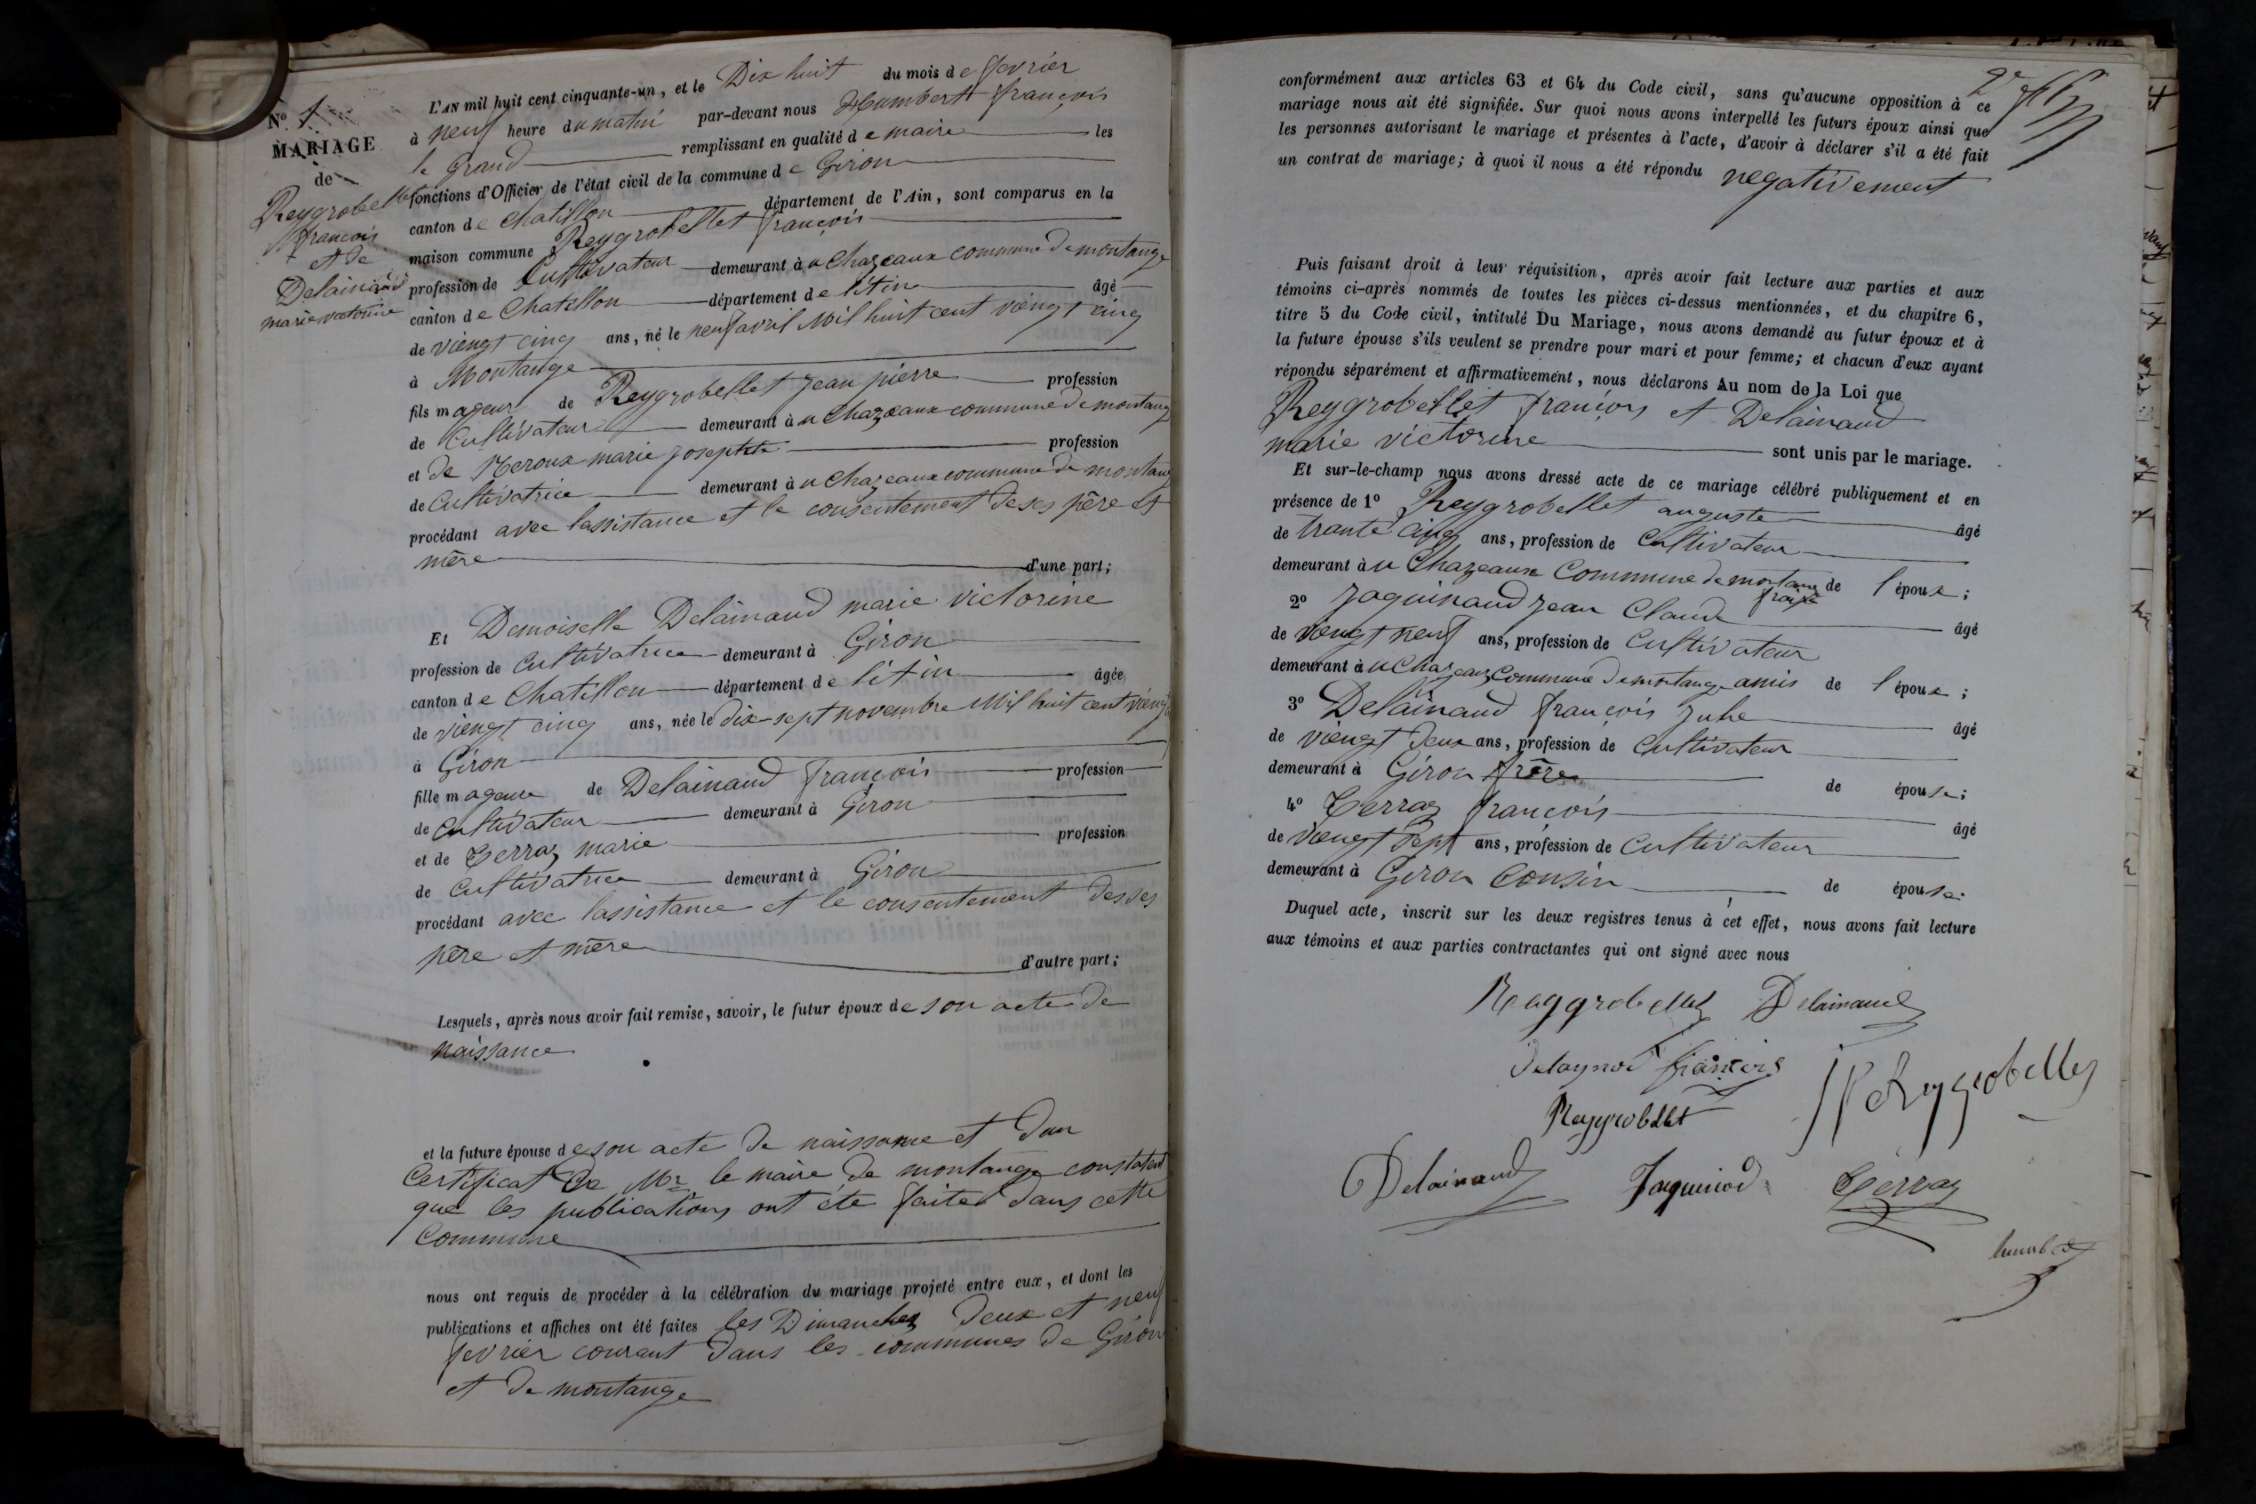 N.º 1
MARIAGE
de
Reygrobellet
françois
et de
Delainaud
marie victorine
L'AN mil huit cent cinquante-un, et le Dix huit du mois de fevrier
à neuf heure du matin par-devant nous Humbert françois
le grand remplissant en qualité de maire les
fonctions d'Officier de l'état civil de la commune de Giron
canton de chatillon département de l'Ain, sont comparus en la
maison commune Reygrobellet françois
profession de Cultivateur demeurant à u Chazeaux commune de montange
canton de Chatillon département de l'Ain âgé
de viengt cinq ans, né le neuf avril Mil huit cent viengt cinq
à Montange
fils mageur de Reygrobellet jean pierre profession
de Cultivateur demeurant à u Chazeaux commune de montange
et de Neroux marie josephte profession
de Cultivatrice demeurant à u Chazeaux commune de montange
procédant avec lassistance et le consentement de ses père et
mère d'une part;
Et Demoiselle Delainaud marie victorine
profession de Cultivatrice demeurant à Giron
canton de Chatillon département de l'Ain âgée
de viengt cinq ans, née le dix-sept novembre Mil huit cent viengt
à Giron
fille mageure de Delainaud françois profession
de Cultivateur demeurant à Giron
et de Terraz marie profession
de Cultivatrice demeurant à Giron
procédant avec lassistance et le consentement desses
père et mère d'autre part;
Lesquels, après nous avoir fait remise, savoir, le futur époux de son acte de
naissance
et la future épouse de son acte de naissance et dun
Certificat de Mr le maire de montange constatent
que les publications ont été faites dans cette
Commune
nous ont requis de procéder à la célébration du mariage projeté entre eux, et dont les
publications et affiches ont été faites les Dimanches deux et neuf
fevrier courant dans les communes de Giron
et de montange
2e
conformément aux articles 63 et 64 du Code civil, sans qu'aucune opposition à ce
mariage nous ait été signifiée. Sur quoi nous avons interpellé les futurs époux ainsi que
les personnes autorisant le mariage et présentes à l'acte, d'avoir à déclarer s'il a été fait
un contrat de mariage; à quoi il nous a été répondu negativement
Puis faisant droit à leur réquisition, après avoir fait lecture aux parties et aux
témoins ci-après nommés de toutes les pièces ci-dessus mentionnées, et du chapitre 6,
titre 5 du Code civil, intitulé Du Mariage, nous avons demandé au futur époux et à
la future épouse s'ils veulent se prendre pour mari et pour femme; et chacun d'eux ayant
répondu séparément et affirmativement, nous déclarons Au nom de la Loi que
Reygrobellet françois et Delainaud
marie victorine sont unis par le mariage.
Et sur-le-champ nous avons dressé acte de ce mariage célébré publiquement et en
présence de 1º Reygrobellet auguste âgé
de trante cinq ans, profession de Cultivateur
demeurant à u Chazeaux Commune de montange frère de l'époux;
2º Jaquinaud jean Claude âgé
de viengt neuf ans, profession de Cultivateur
demeurant à u Chazeaux Commune de montange amis de l'époux;
3º Delainaud françois jule âgé
de viengt deux ans, profession de Cultivateur
demeurant à Giron frère de épouse;
4º Terraz françois âgé
de viengt sept ans, profession de Cultivateur
demeurant à Giron Cousin de épouse.
Duquel acte, inscrit sur les deux registres tenus à cet effet, nous avons fait lecture
aux témoins et aux parties contractantes qui ont signé avec nous
Reygrobellet Delainaud
Delaynod françois
JP Reygrobellet
Reygrobellet
Delainaud Jaquinod Terraz
humbert